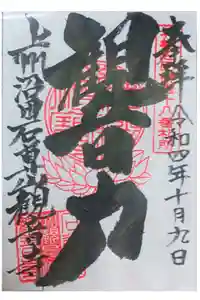 奉拝
令和四年十月九日
観音力
上州沼田石尊山観音寺